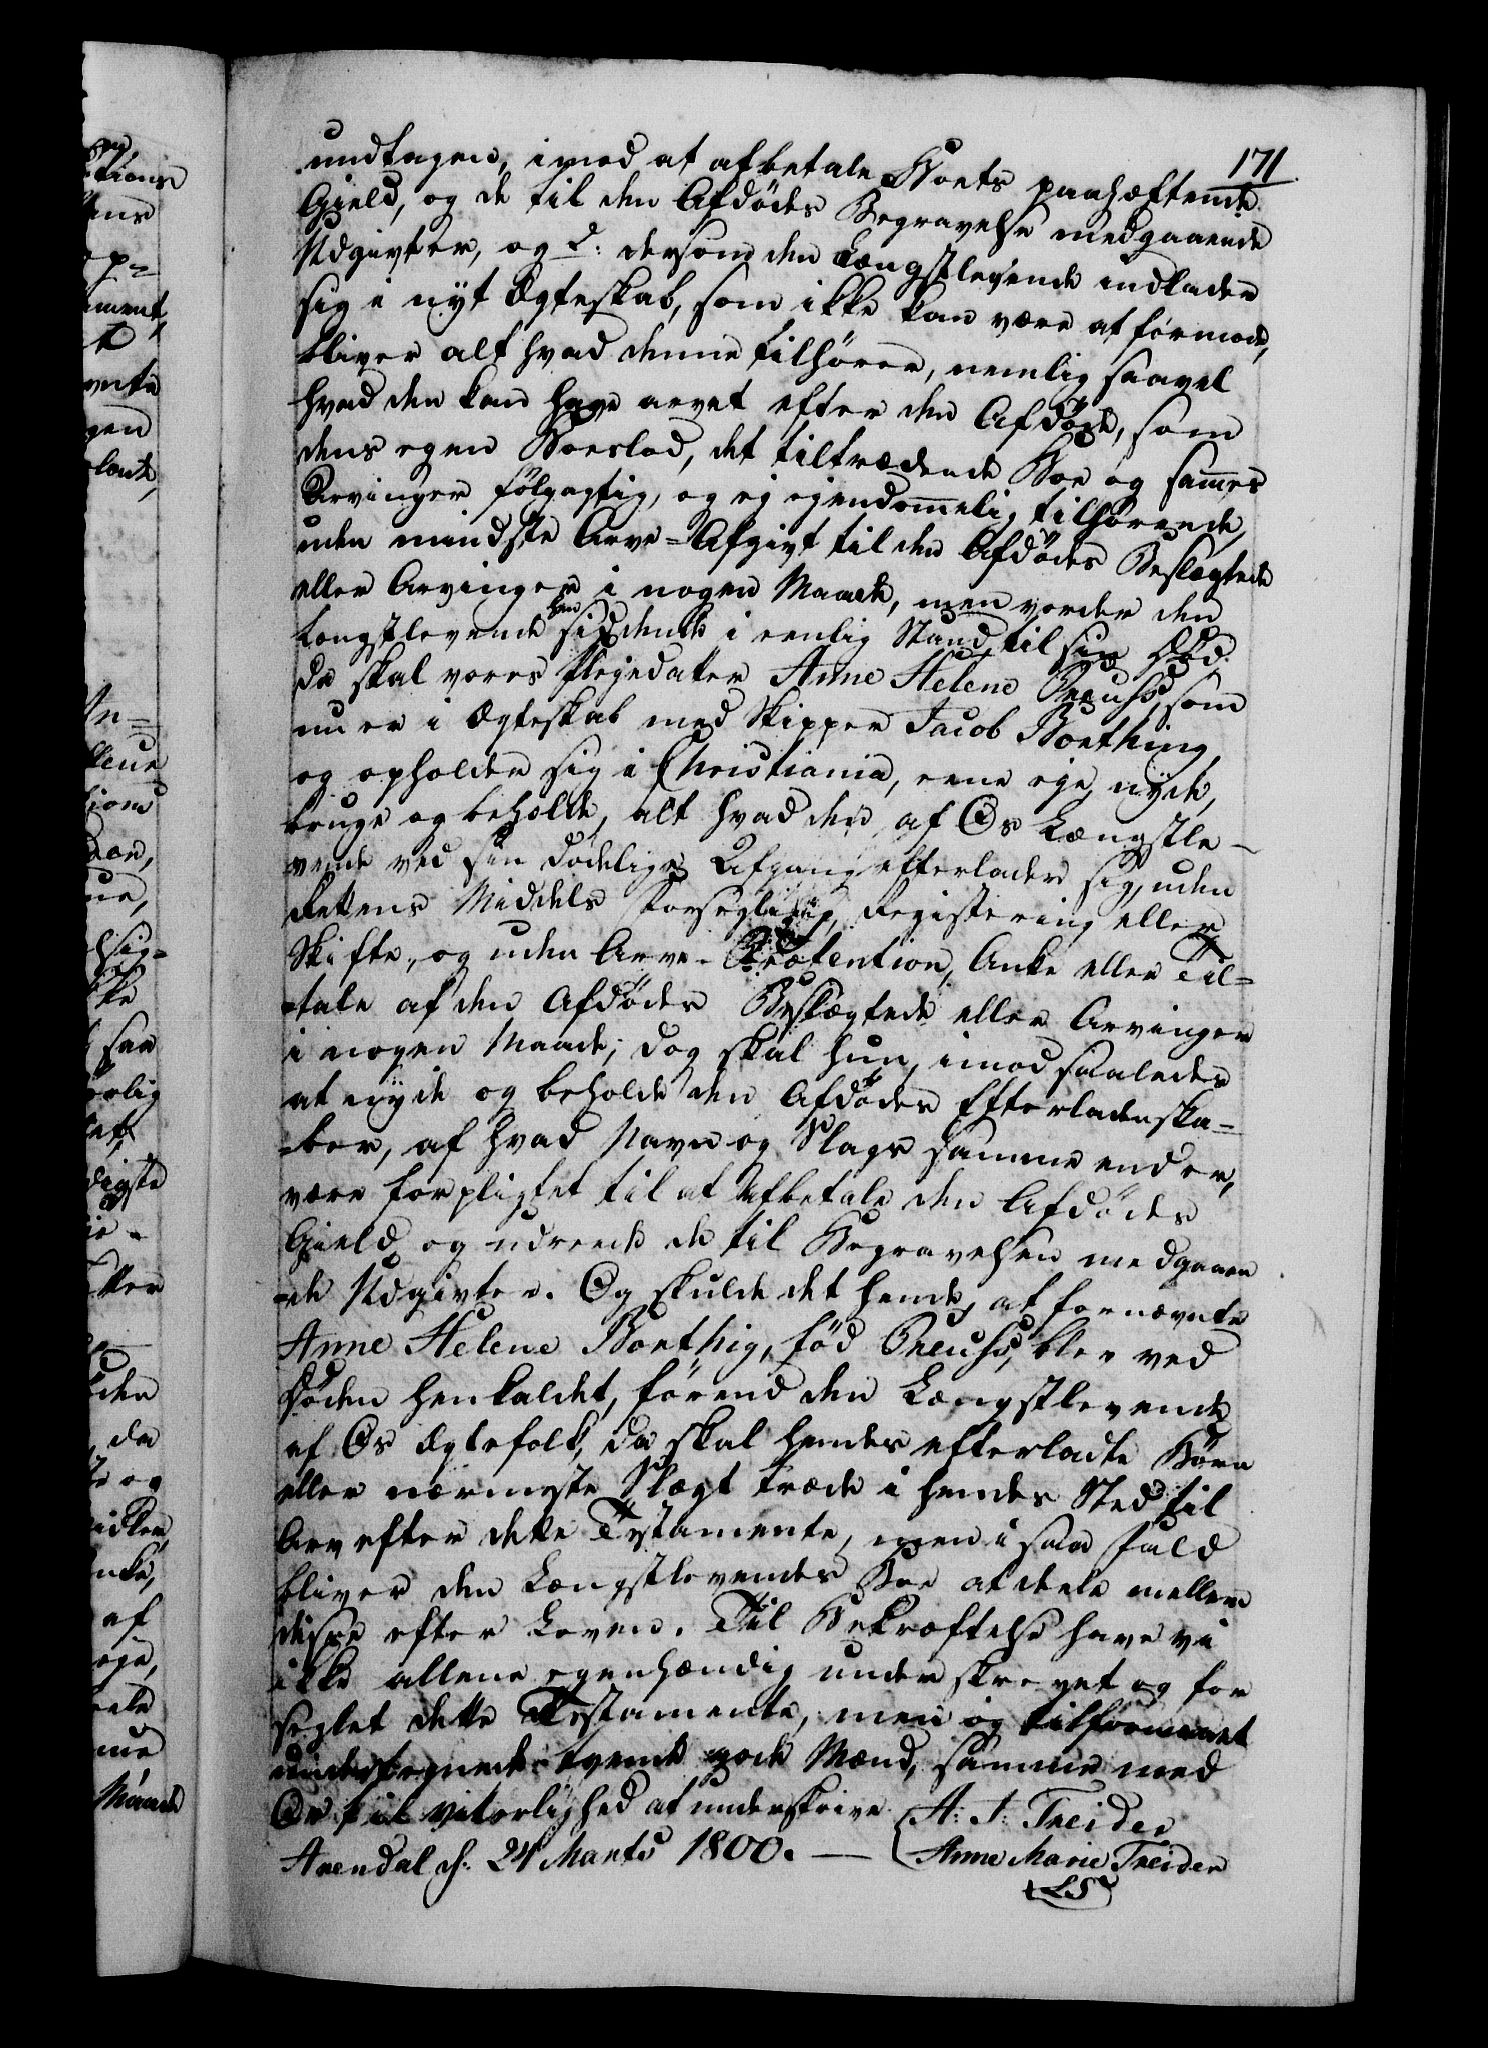 171
undtagen, imod at afbetale Boets paahæftende
Gield, og de til den Afdødes Begravelse medgaaende
Udgivter, og 2: dersom den Længstlevende indlader
sig i nyt Ægteskab, som ikke kan være at formode,
bliver alt hvad denne tilhører, nemlig saavel
hvad den kan have arvet efter den Afdøde, som
dens egen Boeslod, det tiltrædende Boe og sammes
Arvinger følgagtig, og ej ejendommelig tilhørende,
uden mindste Arve-Afgivt til den Afdødes Beslægtede
eller Arvinger i nogen Maade, men vorder den
Længstlevende hensiddende i eenlig Stand til sin Død
da skal vores Plejedatter Anne Helene Preuhs, som
nu er i Ægteskab med Skipper Jacob Boething,
og opholder sig i Christiania, eene eje, nyde,
bruge og beholde, alt hvad den af Os Længstle-
vende ved sin dødelige Afgang efterlader sig, uden
Rettens Middels Forsegling, Registering eller
Skifte, og uden Arve-Prætention, Anke eller Til=
=tale af den Afdødes Beslægtede eller Arvinger
i nogen Maade; dog skal hun, imod saaledes
at nyde og beholde den Afdødes Efterladenska=
=ber, af hvad Navn og Slags samme end er,
være forpligtet til at afbetale den Afdødes
Gield og udreede de til Begravelsen medgaaen
=de Udgivter. Og skulde det hende, at fornævnte
Anne Helene Boethig, fød Preuhs, blev ved
Døden henkaldet, førend den Længstlevende
af Os Ægtefolk, da skal hendes efterladte Børn
eller nærmeste Slægt træde i hendes Sted til
Arv efter dette Testamente, men i saa Fald
bliver den Længstlevendes Boe at deele mellem
disse efter Loven. Til Bekræftelse have vi
ikke allene egenhændig underskrevet og for
seglet dette Testamente, men og tilformaaet
undertegnede tvende gode Mænd, samme med
Os til Vitterlighed at underskrive.
Arendal d: 24 Marts 1800. —
A: J. Treider
Anne Marie Treider
LS